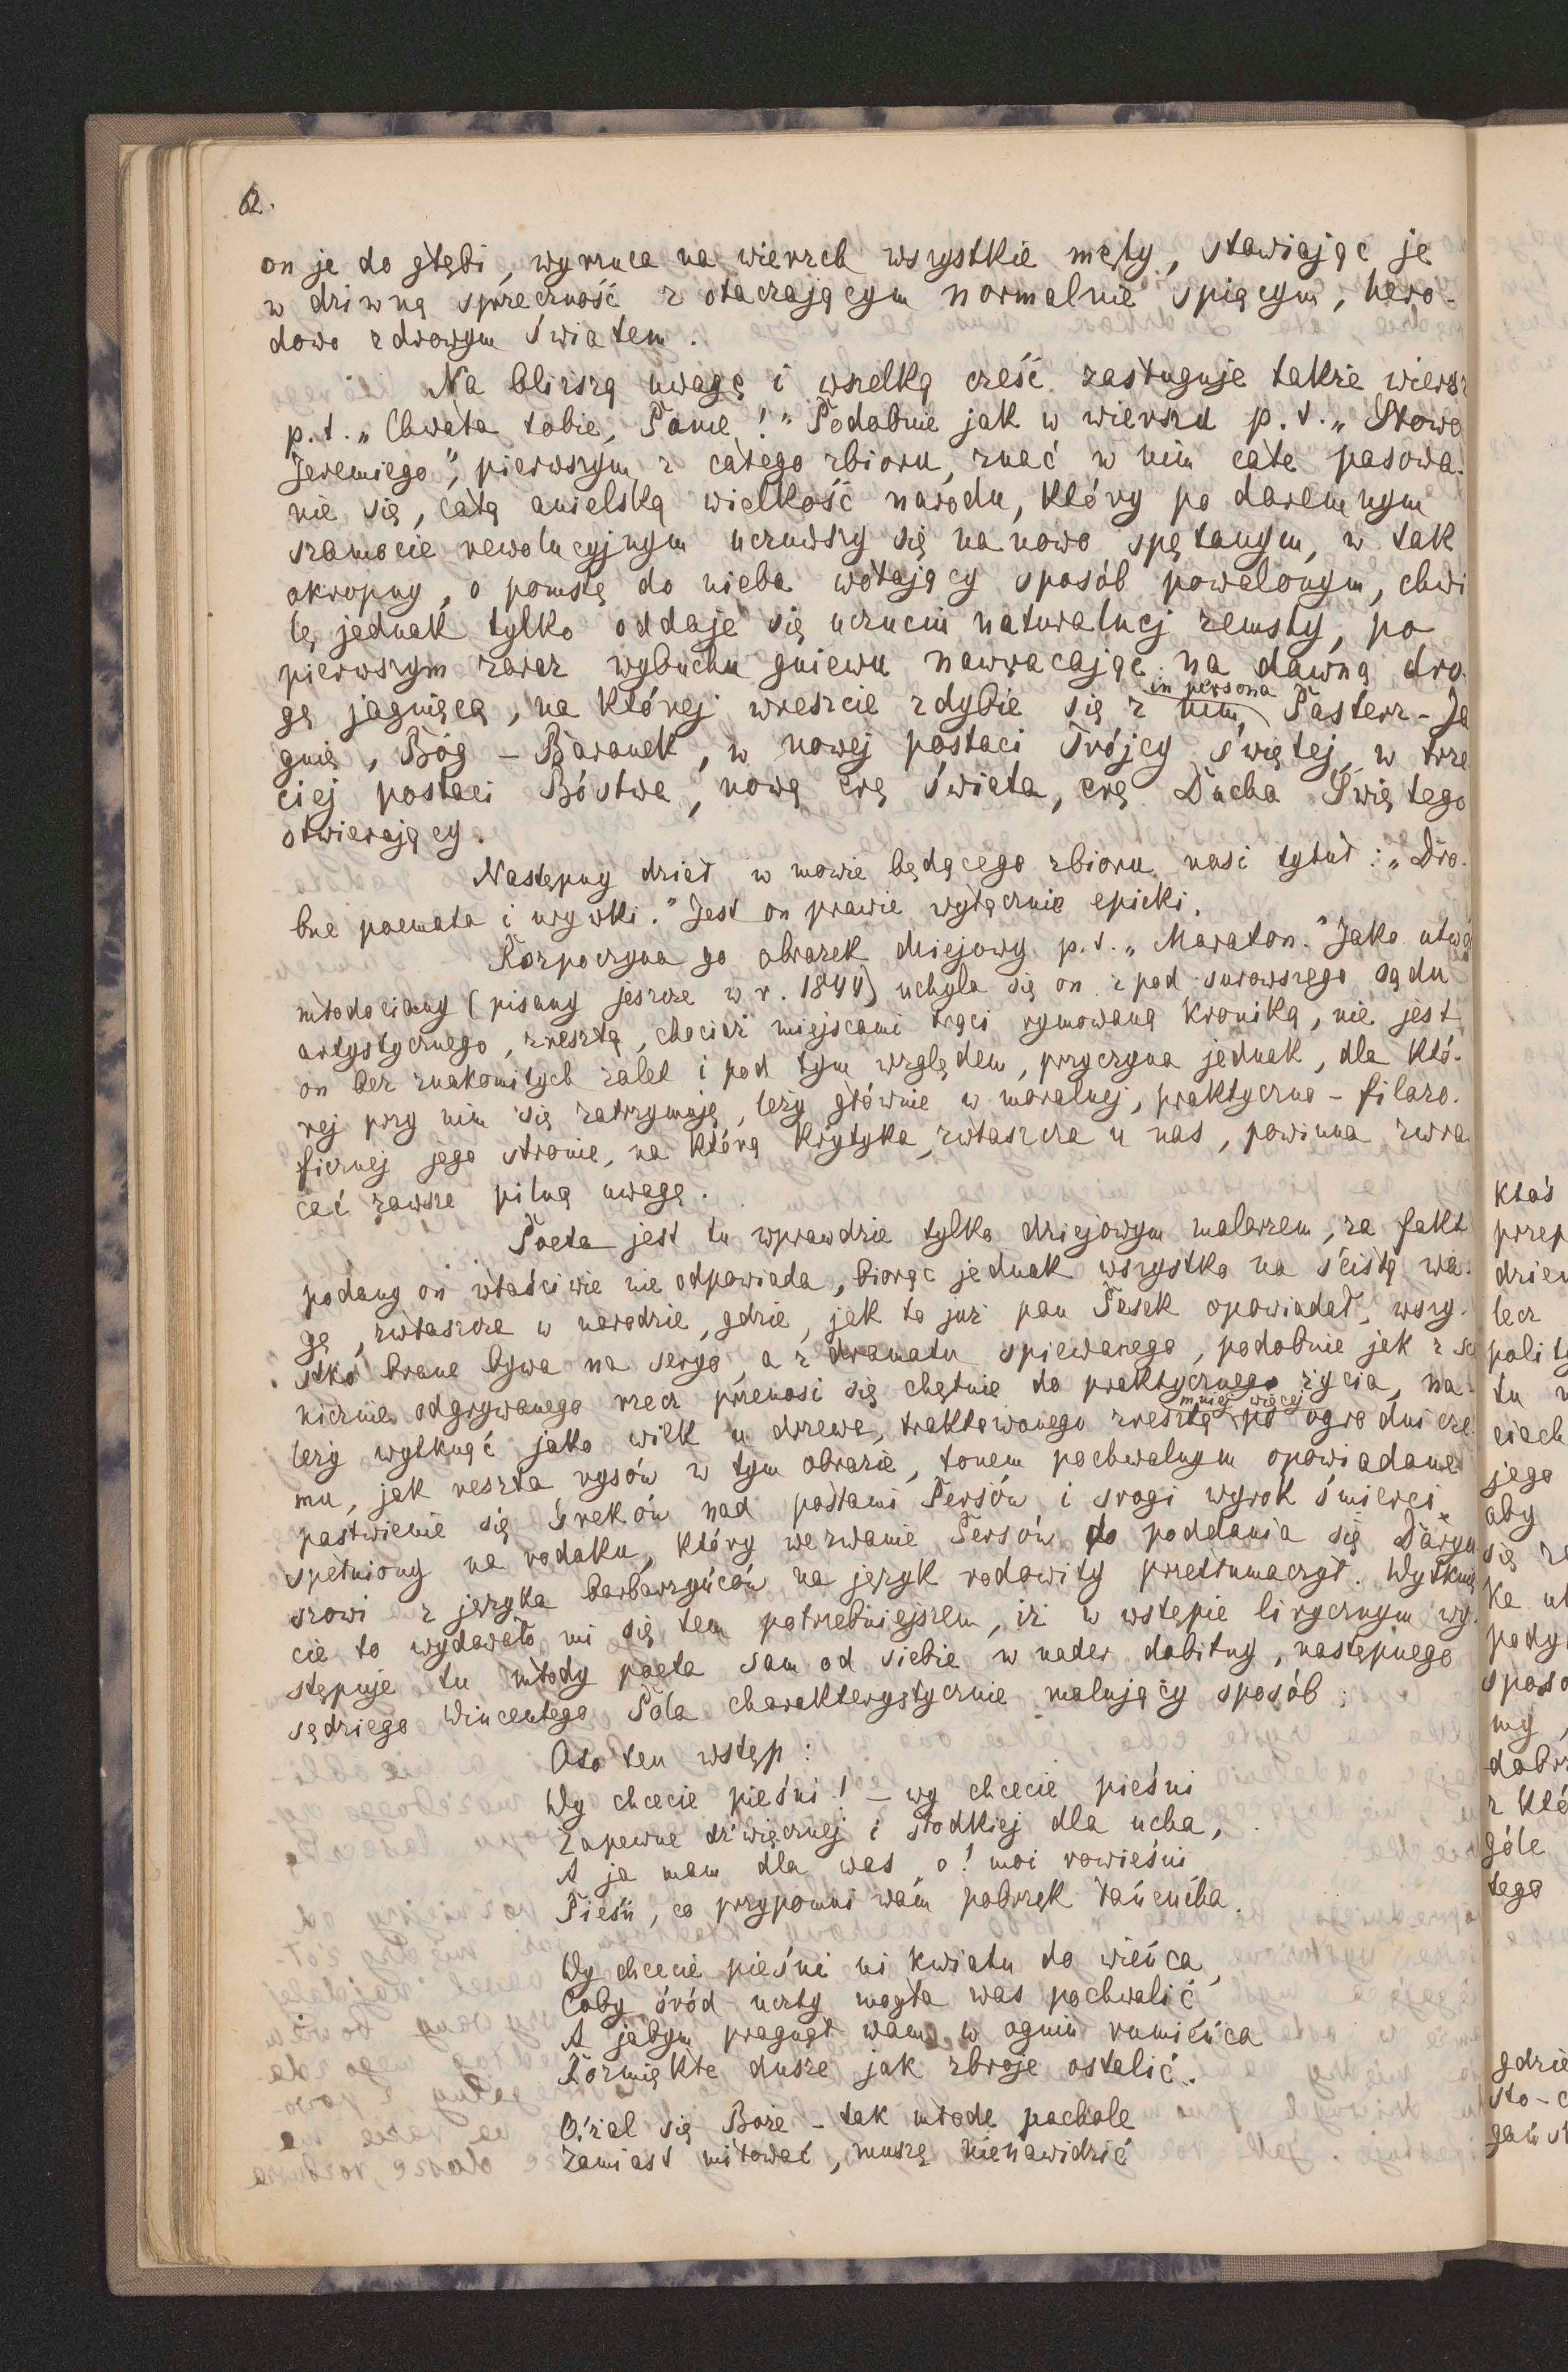 62.
on je do głębi, wyrzuca na wierzch wszystkie męty, stawiając je
w dziwną sprzeczność z otaczającym normalnie śpiącym, hero-
dowo zdrowym światem.
Na bliższą uwagę i wszelką cześć zasługuje także wiersz
p.t. „Chwała tobie, Panie!" Podobnie jak w wierszu p.t. „Słowo
Jeremiego", pierwszym z całego zbioru, znać w nim całe pasowa-
nie się, całą anielską wielkość narodu, który po daremnym
szamocie rewolucyjnym uczuwszy się na nowo spętanym, w tak
okropny, o pomstę do nieba wołający sposób powalonym, chwi
lę jednak tylko oddaje się uczuciu naturalnej zemsty, po
pierwszym zaraz wybuchu gniewu nawracając na dawną dro-
gę jagnięcą, na której wreszcie zdybie się z nim, in persona Pasterz-Ja
gnię, Bóg – Baranek, w nowej postaci Trójcy świętej, w trze
ciej postaci Bóstwa, nową erę świata, erę Ducha Świętego
otwierający.
Następny dział w mowie będącego zbioru nosi tytuł: „Dro-
bne poemata i urywki." Jest on prawie wyłącznie epicki.
Rozpoczyna go obrazek dziejowy p.t. „Maraton." Jako utwó
młodociany (pisany jeszcze w r. 1844) uchyla się on z pod surowszego sądu
artystycznego, zresztą, chociaż miejscami trąci rymowaną kroniką, nie jest
on bez znakomitych zalet i pod tym względem, przyczyna jednak, dla któ-
rej przy nim się zatrzymuję, leży głównie w moralnej, praktyczno – filozo-
ficznej jego stronie, na którą krytyka, zwłaszcza u nas, powinna zwra
cać zawsze pilną uwagę.
Poeta jest tu wprawdzie tylko dziejowym malarzem, za fakt
podany on właściwie nie odpowiada, biorąc jednak wszystko na ścisłą wa-
gę, zwłaszcza w narodzie, gdzie, jak to już pan Pasek opowiadał, wszy-
stko brane bywa na seryo, a z dramatu śpiewanego, podobnie jak z sce
nicznie odgrywanego rzecz przenosi się chętnie do praktycznego życia, na-
leży wytknąć jako wilk u drzewa, traktowanego zresztą mniej więcej po ogrodnicze
mu, jak reszta rysów w tym obrazie, tonem pochwalnym opowiadane
pastwienie się Greków nad posłami Persów i srogi wyrok śmierci
spełniony na rodaku, który wezwanie Persów do poddania się Daryu
szowi z języka barbarzyńców na język rodowity przetłumaczył. Wytknię
cie to wydawało mi się tem potrzebniejszem, iż w wstępie lirycznym wy-
stępuje tu młody poeta sam od siebie w nader dobitny, następnego
sędziego Wincentego Pola charakterystycznie malujący sposób:
Oto ten wstęp:
Wy chcecie pieśni! – wy chcecie pieśni
Zapewne dźwięcznej i słodkiej dla ucha,
A ja mam dla was, o! moi rowieśni
Pieśń, co przypomni wam pobrzęk łańcucha.
Wy chcecie pieśni ni kwiatu do wieńca,
Coby śród uczty mogła was pochwalić
A jabym pragnął wam, w ogniu rumieńca
Rozmiękłe dusze jak zbroje ostalić.
O! żal się Boże – tak młode pachole
Zamiast miłować, muszę nienawidzić
ktoś
przep
dzien
lecz
polity
tu
ciach
jego
aby
się
ka
pody
sposo
my,
dobrz
z któ
góle
tego
gdzie
sto-
gań